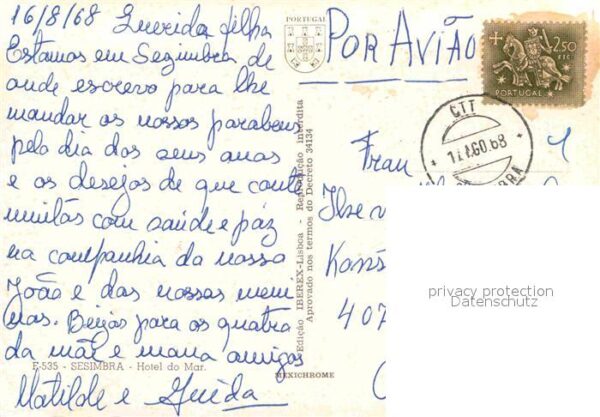 16/8/68 Querida filha
Estamos em Sezimbra de
onde escrevo para lhe
mandar os nossos parabens
pelo dia dos seus anos
e os desejos de que conte
muitos com saúde e paz
na companhia da nossa
João e das nossas meni
nas. Beijos para os quatro
da mãe e mana amigas
E-535 - SESIMBRA - Hotel do Mar.
Matilde e Guida
PORTUGAL
POR AVIÃO
2$50
PORTUGAL
CTT
17.AGO.68
Edição IBEREX-Lisboa - Reprodução interdita
Aprovado nos termos do Decreto 34134
MEXICHROME
Frau
Ilse
Kons
407
privacy protection
Datenschutz